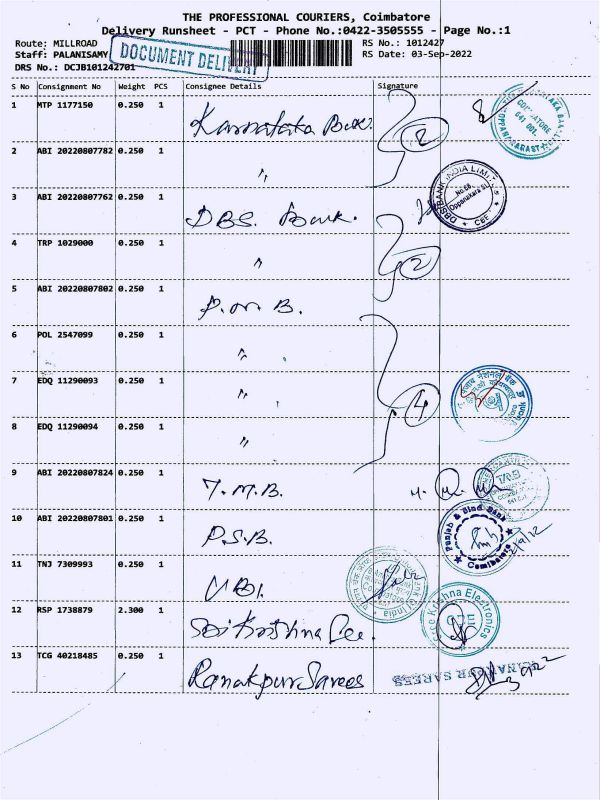 THE PROFESSIONAL COURIERS, Coimbatore
Delivery Runsheet - PCT - Phone No.:0422-3505555 - Page No.:1
Route: MILLROAD RS No.: 1012427
Staff: PALANISAMY DOCUMENT DELIVERY RS Date: 03-Sep-2022
DRS No.: DCJB101242701
S No Consignment No Weight PCS Consignee Details Signature
1 MTP 1177150 0.250 1 Karnataka Bank. 2
COIMBATORE
641 001.
2 ABI 20220807782 0.250 1 "
3 ABI 20220807762 0.250 1 DBS. Bank.
DBS BANK INDIA LIMITED
No.88,
Oppanakara St.
CBE
4 TRP 1029000 0.250 1 " 2
5 ABI 20220807802 0.250 1 P.N.B.
6 POL 2547099 0.250 1 "
7 EDQ 11290093 0.250 1 " 4
8 EDQ 11290094 0.250 1 "
9 ABI 20220807824 0.250 1 T.M.B.
10 ABI 20220807801 0.250 1 P.S.B.
Punjab & Sind Bank
Coimbatore
11 TNJ 7309993 0.250 1 UBI.
12 RSP 1738879 2.300 1 Sri Krishna Ele.
Sree Krishna Electronics
13 TCG 40218485 0.250 1 Ranakpur Sarees
RANAKPUR SAREES